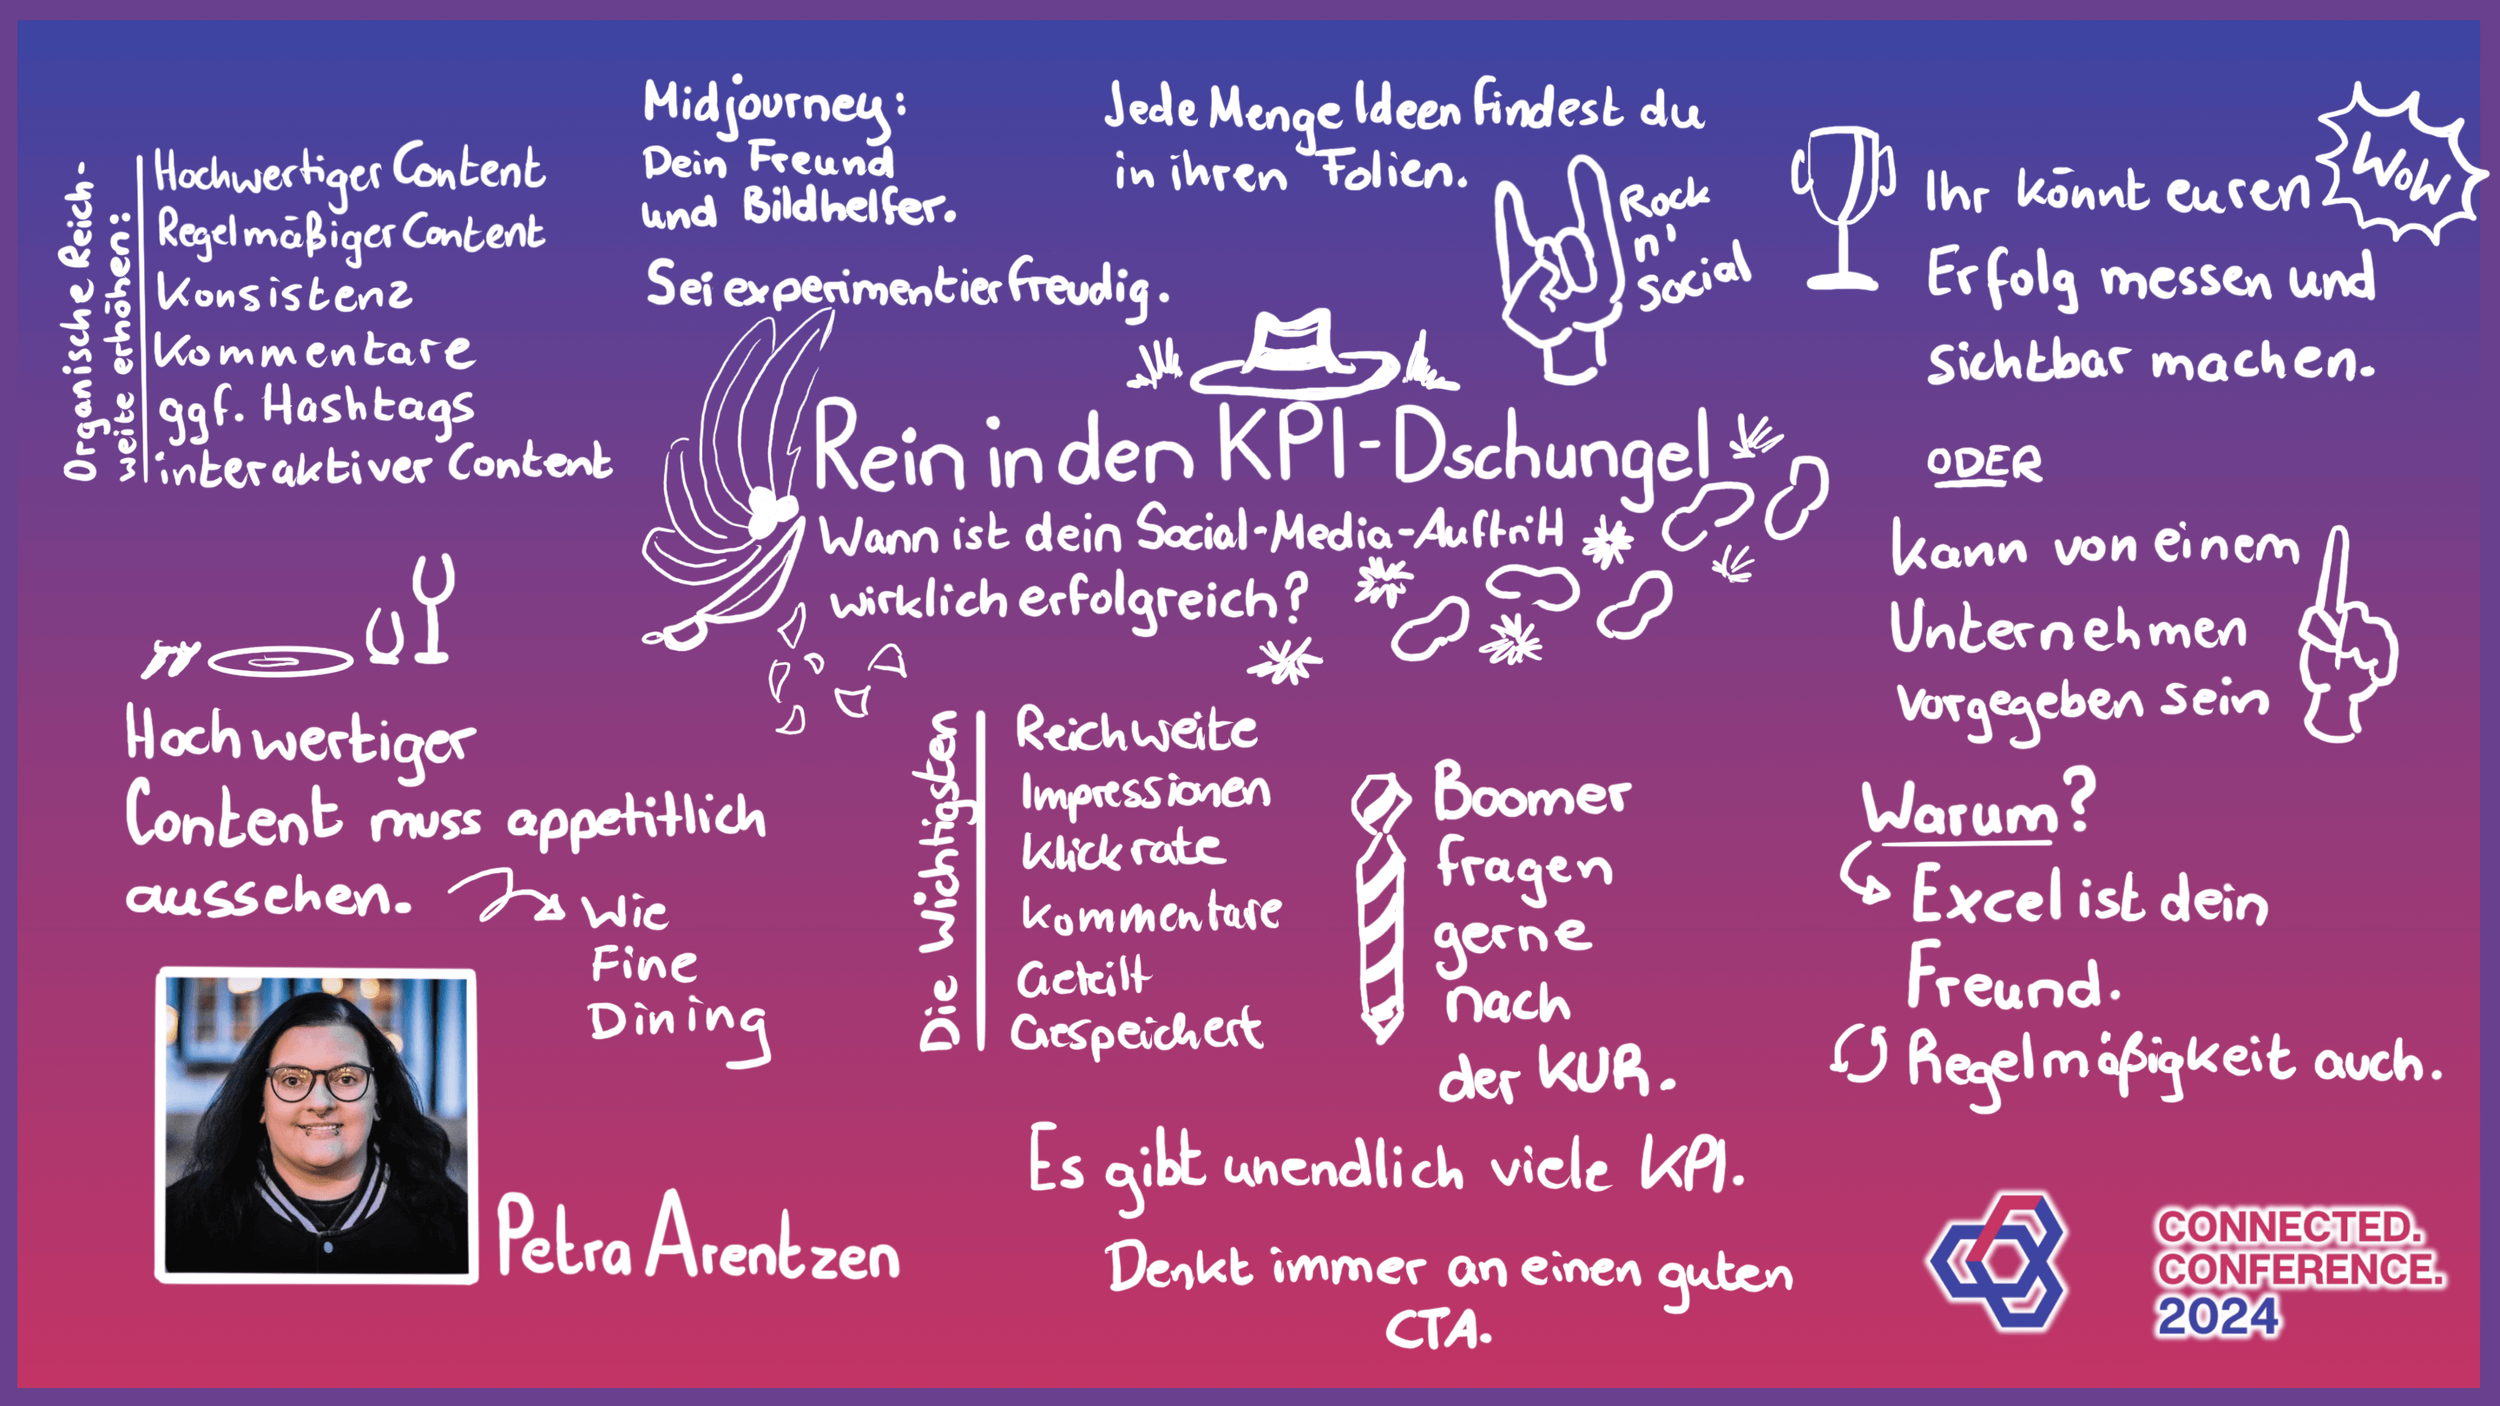 Rein in den KPI-Dschungel
Wann ist dein Social-Media-Auftritt
wirklich erfolgreich?
Organische Reich-
weite erhöhen:
Hochwertiger Content
Regelmäßiger Content
Konsistenz
Kommentare
ggf. Hashtags
interaktiver Content
Midjourney:
Dein Freund
und Bildhelfer.
Sei experimentierfreudig.
Jede Menge Ideen findest du
in ihren Folien.
Rock
n'
Social
Ihr könnt euren
Erfolg messen und
sichtbar machen.
WOW
ODER
kann von einem
Unternehmen
vorgegeben sein
Warum?
Excel ist dein
Freund.
Regelmäßigkeit auch.
Hochwertiger
Content muss appetitlich
aussehen.
Wie
Fine
Dining
Die Wichtigsten
Reichweite
Impressionen
Klickrate
Kommentare
Geteilt
Gespeichert
Boomer
fragen
gerne
nach
der KUR.
Es gibt unendlich viele KPI.
Denkt immer an einen guten
CTA.
Petra Arentzen
CONNECTED.
CONFERENCE.
2024